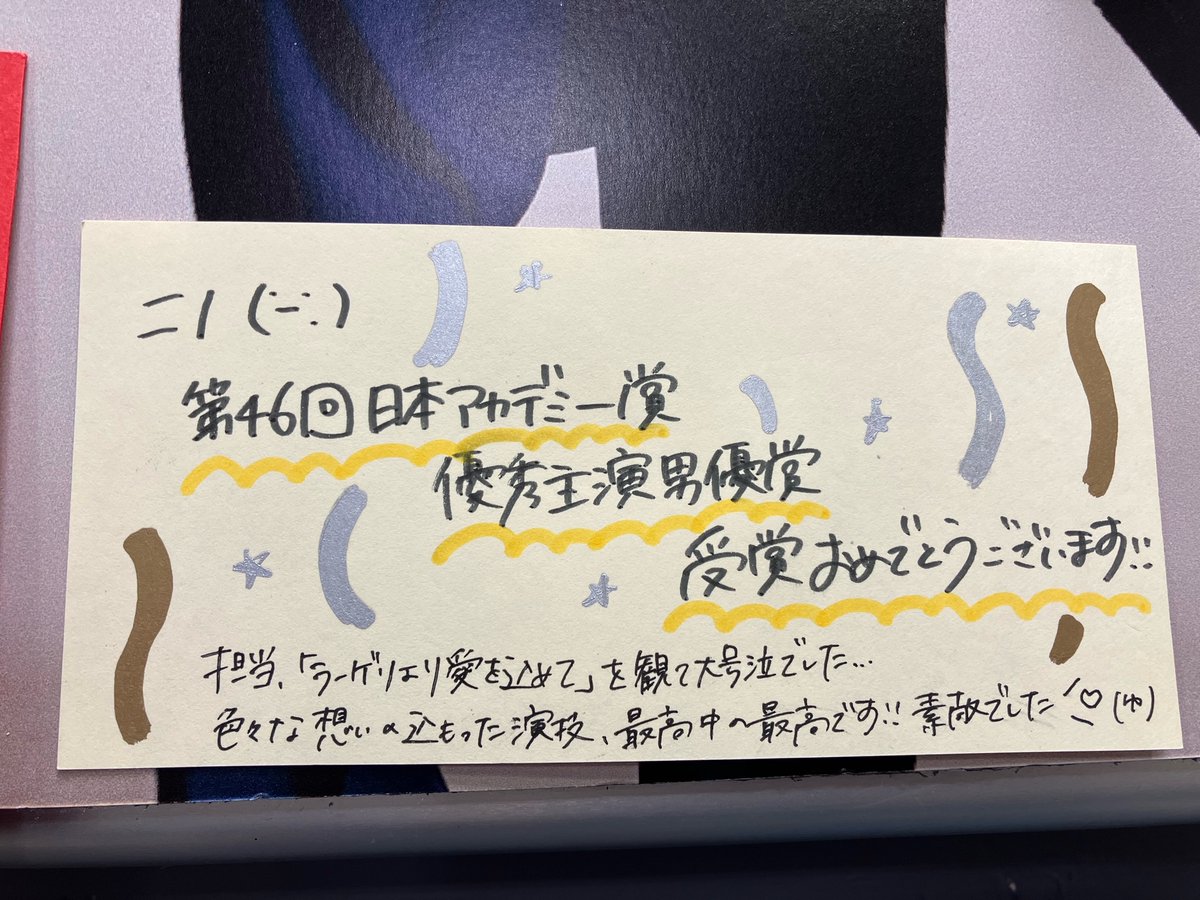 ニノ(∵)
第46回日本アカデミー賞
優秀主演男優賞
受賞おめでとうございます!!
担当、「ラーゲリより愛を込めて」を観て大号泣でした…
色々な想いの込もった演技、最高中の最高です!! 素敵でした♡(ゆ)